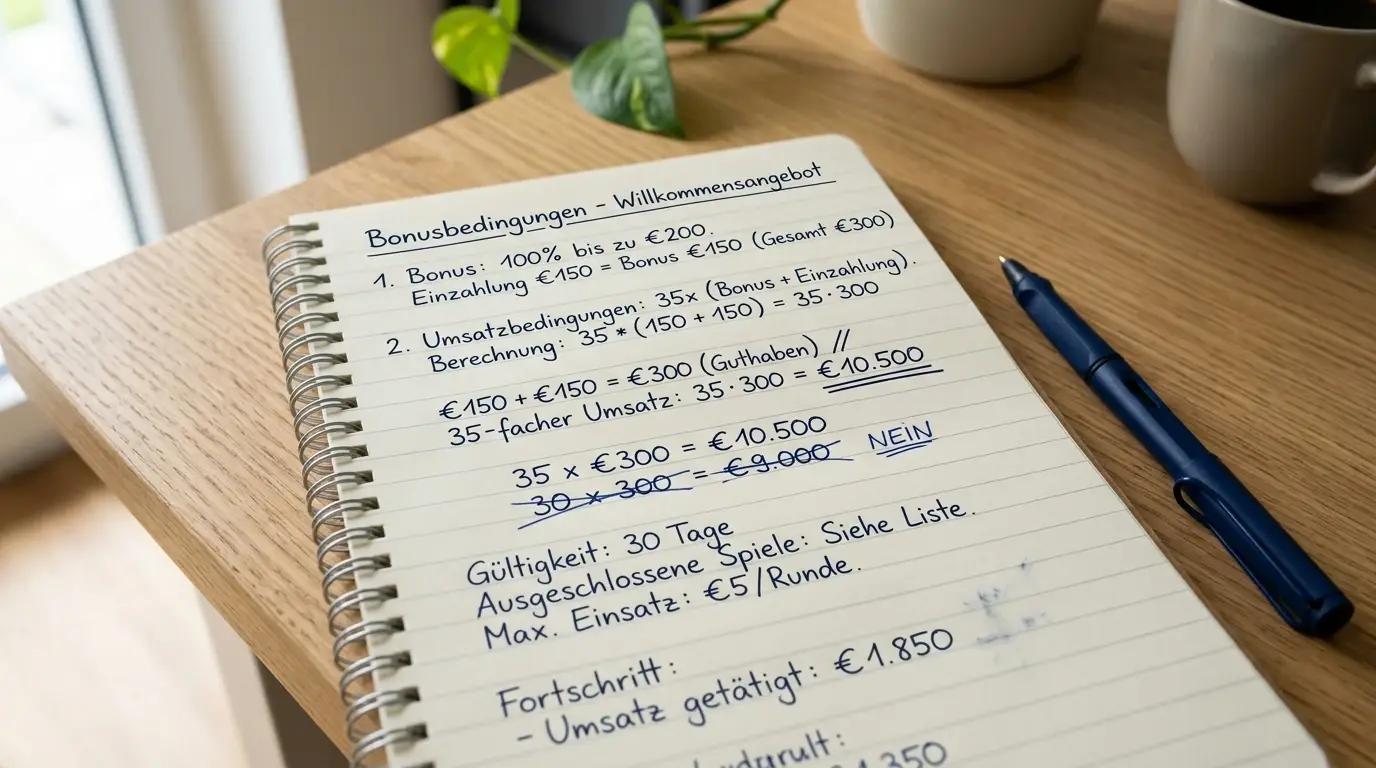 Bonusbedingungen - Willkommensangebot
1. Bonus: 100% bis zu €200.
Einzahlung €150 = Bonus €150 (Gesamt €300)
2. Umsatzbedingungen: 35x (Bonus + Einzahlung).
Berechnung: 35 * (150 + 150) = 35 · 300
€150 + €150 = €300 (Guthaben) //
35-facher Umsatz: 35 · 300 = €10.500
35 x €300 = €10.500
30 x 300 = €9.000 NEIN
Gültigkeit: 30 Tage
Ausgeschlossene Spiele: Siehe Liste.
Max. Einsatz: €5/Runde.
Fortschritt:
- Umsatz getätigt: €1.850